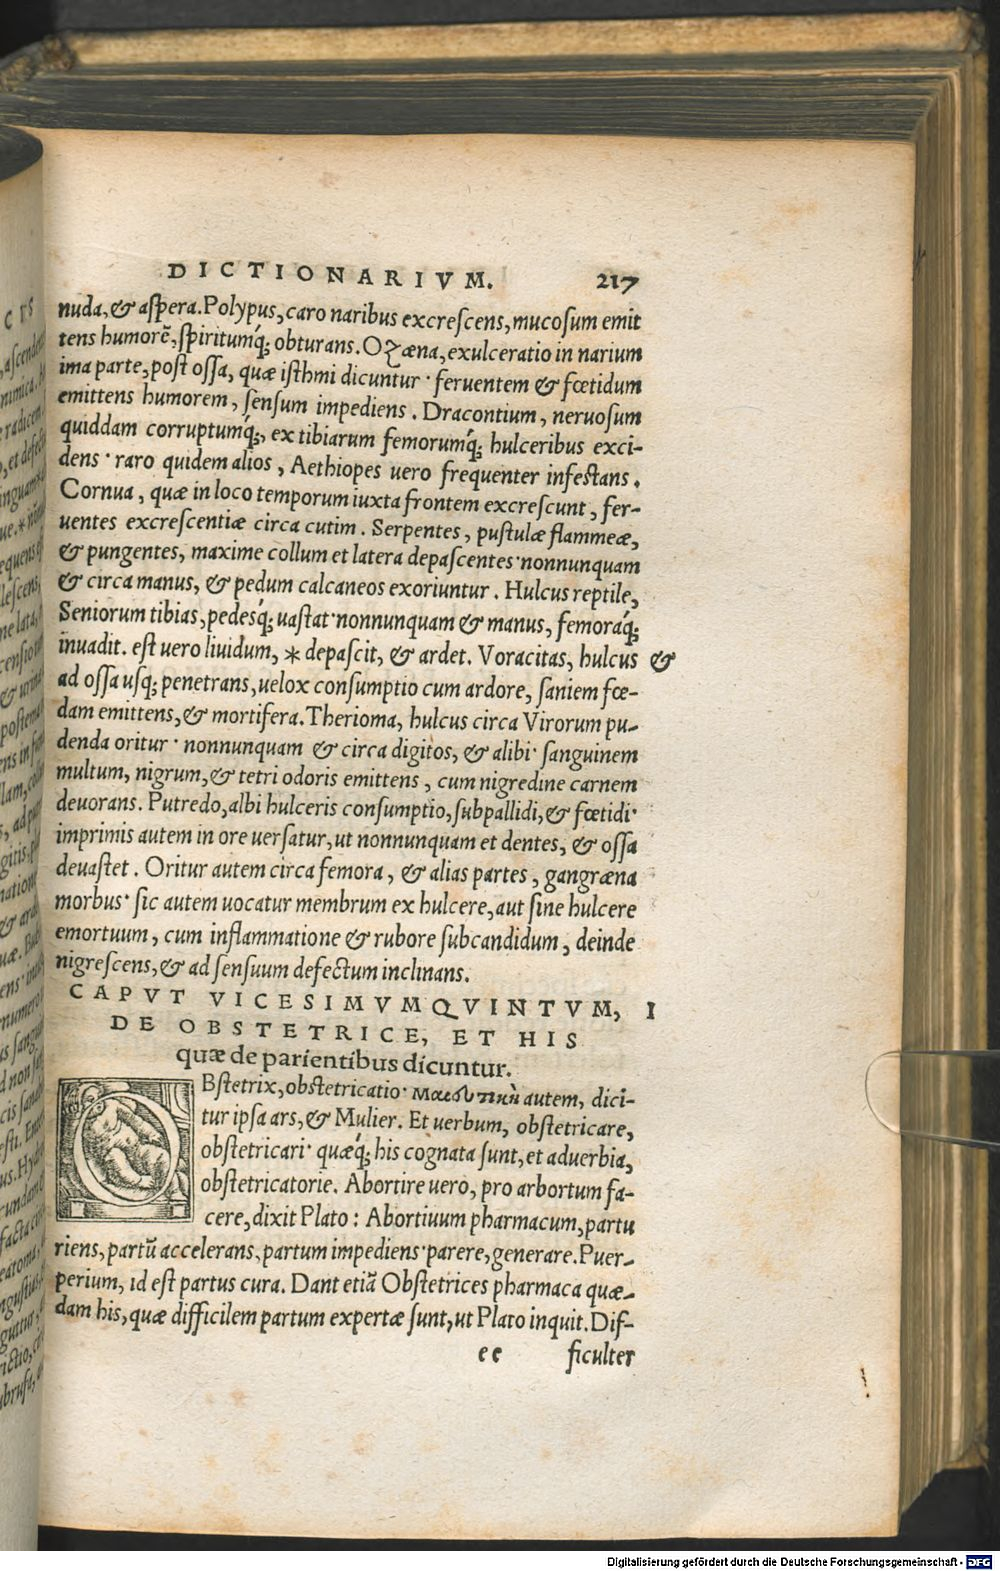 DICTIONARIVM. 217
nuda, & aspera. Polypus, caro naribus excrescens, mucosum emit
tens humorē, spiritumq́; obturans. Ozæna, exulceratio in narium
ima parte, post ossa, quæ isthmi dicuntur· feruentem & fœtidum
emittens humorem, sensum impediens. Dracontium, neruosum
quiddam corruptumq́;, ex tibiarum femorumq́; hulceribus exci-
dens· raro quidem alios, Aethiopes uero frequenter infestans.
Cornua, quæ in loco temporum iuxta frontem excrescunt, fer-
uentes excrescentiæ circa cutim. Serpentes, pustulæ flammeæ,
& pungentes, maxime collum et latera depascentes· nonnunquam
& circa manus, & pedum calcaneos exoriuntur. Hulcus reptile,
Seniorum tibias, pedesq́; uastat· nonnunquam & manus, femoraq́;
inuadit. est uero liuidum, * depascit, & ardet. Voracitas, hulcus &
ad ossa usq; penetrans, uelox consumptio cum ardore, saniem fœ-
dam emittens, & mortifera. Therioma, hulcus circa Virorum pu-
denda oritur· nonnunquam & circa digitos, & alibi· sanguinem
multum, nigrum, & tetri odoris emittens, cum nigredine carnem
deuorans. Putredo, albi hulceris consumptio, subpallidi, & fœtidi·
imprimis autem in ore uersatur, ut nonnunquam et dentes, & ossa
deuastet. Oritur autem circa femora, & alias partes, gangræna
morbus· sic autem uocatur membrum ex hulcere, aut sine hulcere
emortuum, cum inflammatione & rubore subcandidum, deinde
nigrescens, & ad sensuum defectum inclinans.
CAPVT VICESIMVMQVINTVM, I
DE OBSTETRICE, ET HIS
quæ de parientibus dicuntur.
OBstetrix, obstetricatio· μαιευτικὴ autem, dici-
tur ipsa ars, & Mulier. Et uerbum, obstetricare,
obstetricari· quæq́; his cognata sunt, et aduerbia,
obstetricatorie. Abortire uero, pro arbortum fa-
cere, dixit Plato: Abortiuum pharmacum, partu
riens, partū accelerans, partum impediens· parere, generare. Puer-
perium, id est partus cura. Dant etiā Obstetrices pharmaca quæ-
dam his, quæ difficilem partum expertæ sunt, ut Plato inquit. Dif-
ee ficulter
Digitalisierung gefördert durch die Deutsche Forschungsgemeinschaft - DFG